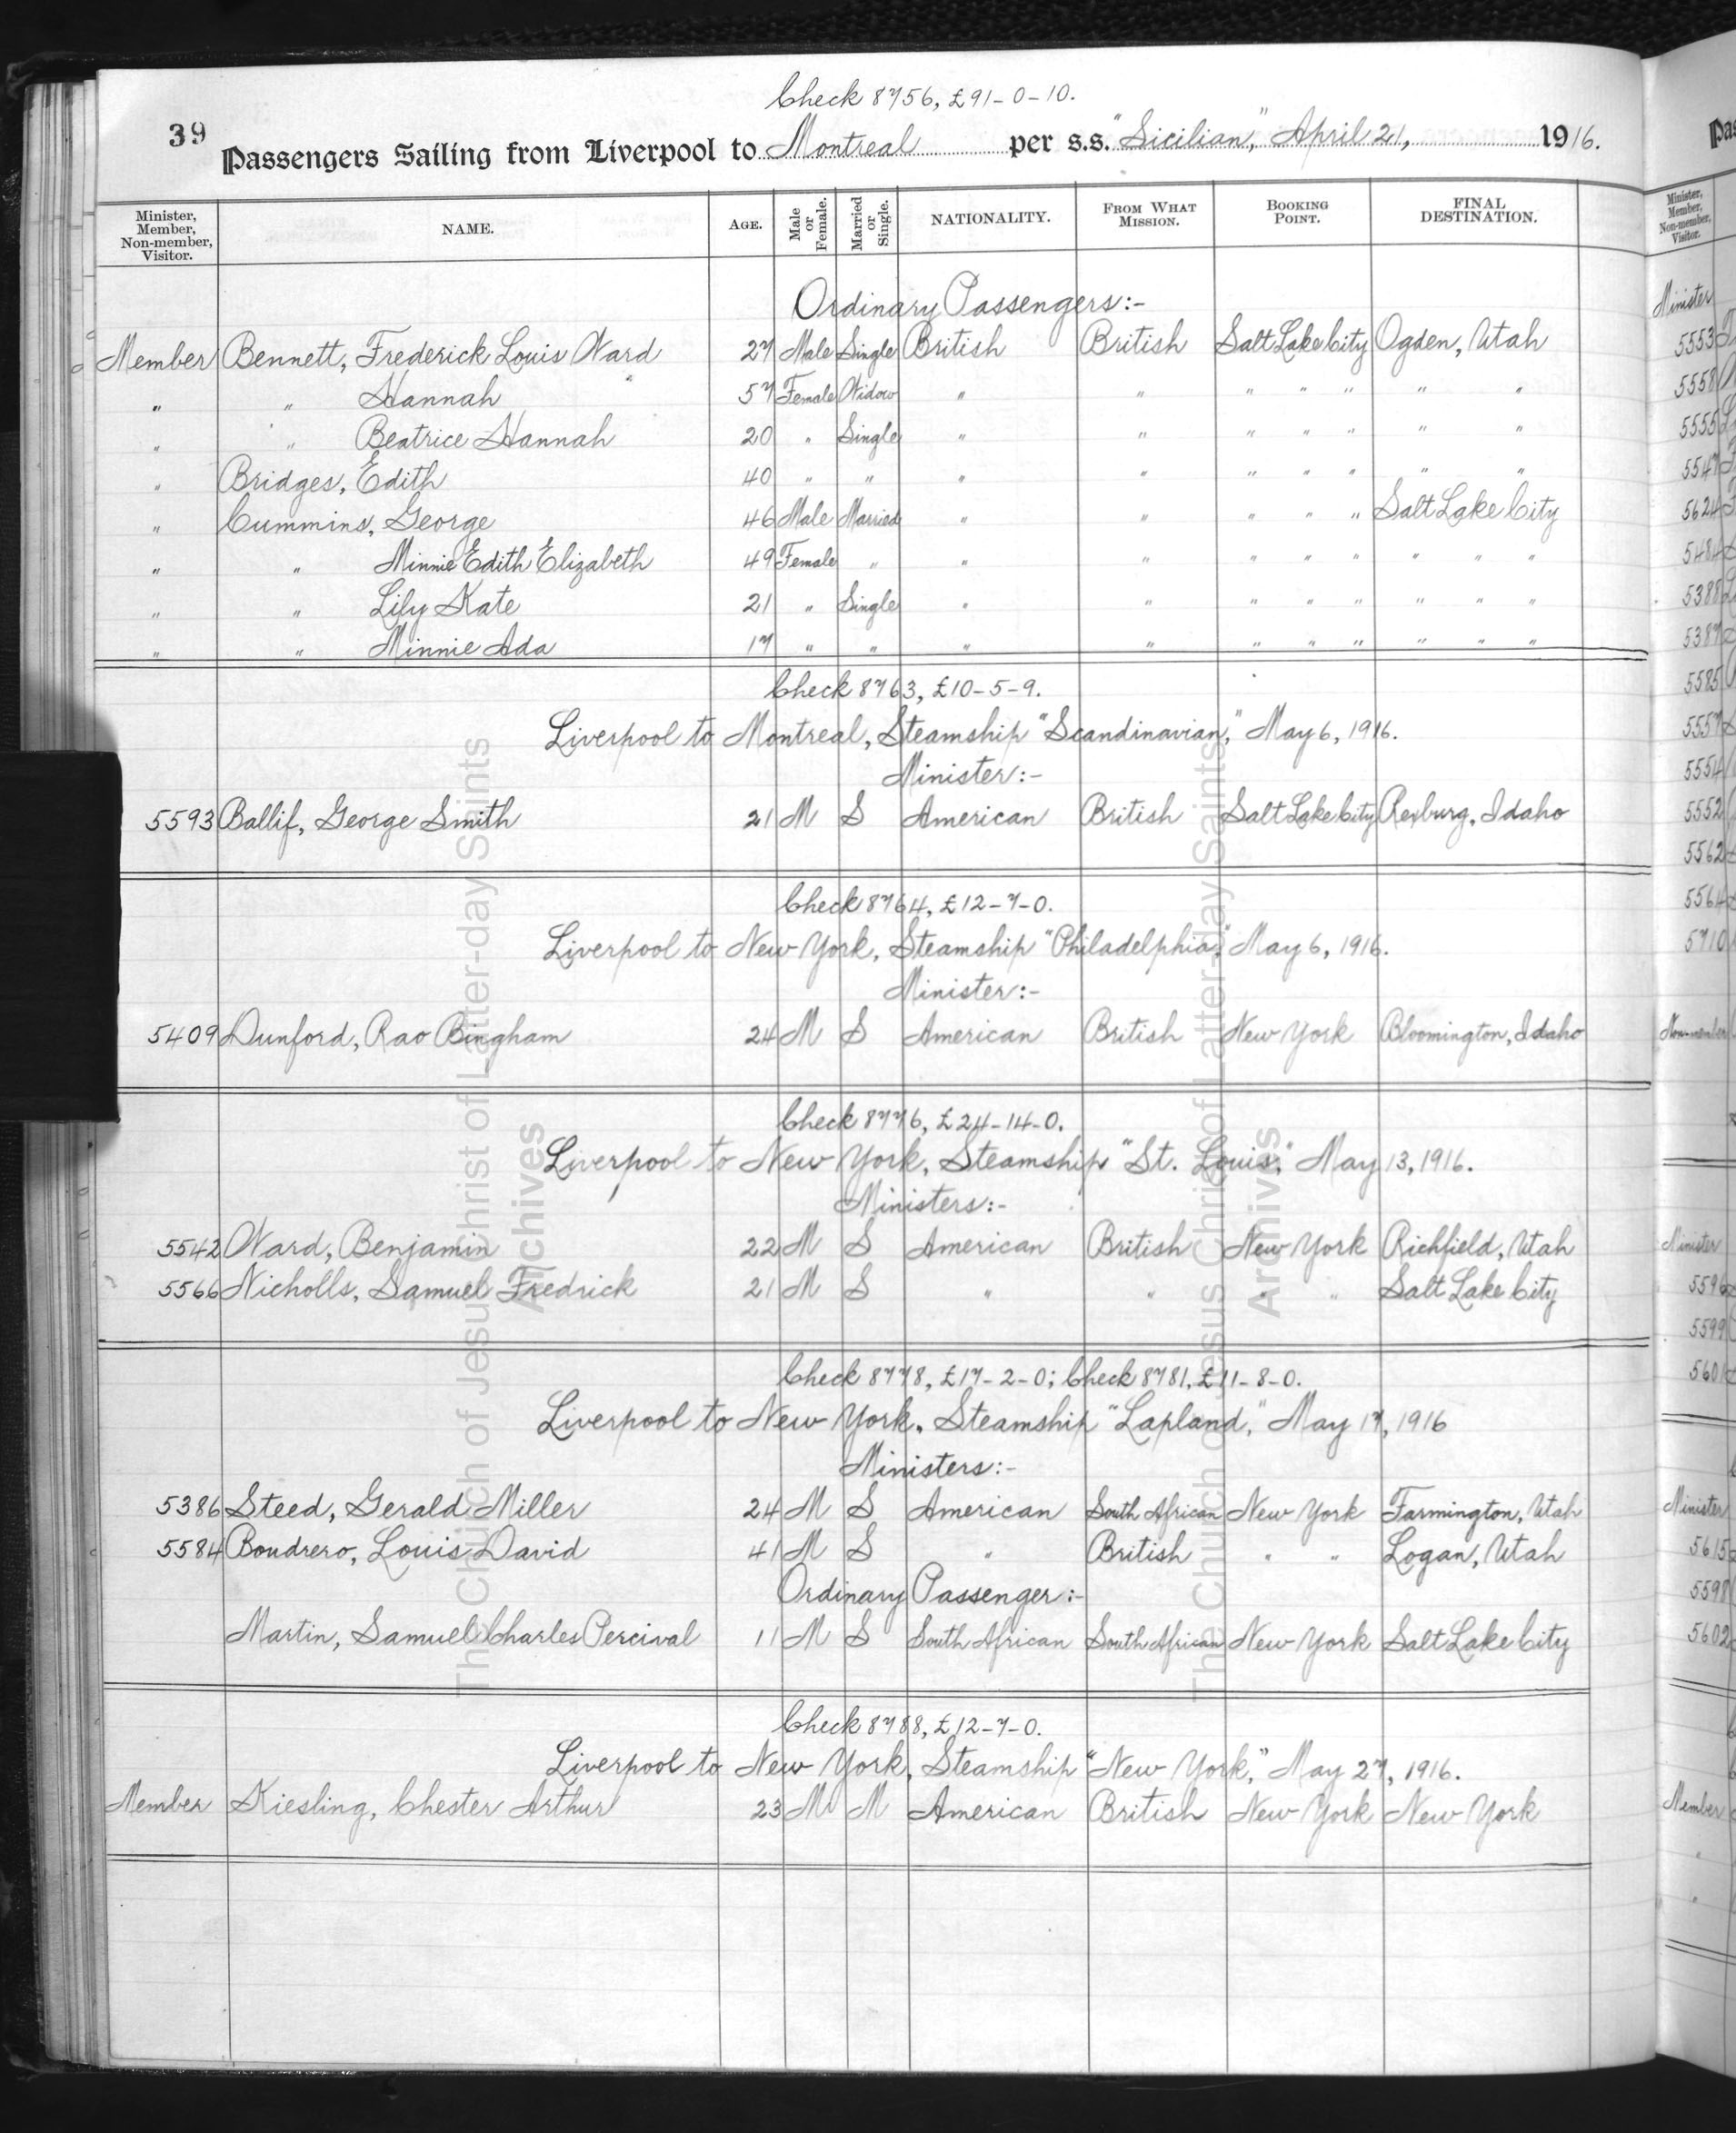 Check 8756, £91-0-10.
39
Passengers Sailing from Liverpool to Montreal per s.s. "Sicilian," April 21, 1916.
Minister, Member, Non-member, Visitor. NAME. AGE. Male or Female. Married or Single. NATIONALITY. FROM WHAT MISSION. BOOKING POINT. FINAL DESTINATION.
Ordinary Passengers:-
Member Bennett, Frederick Louis Ward 27 Male Single British British Salt Lake City Ogden, Utah
" " Hannah 57 Female Widow " " " " " " "
" " Beatrice Hannah 20 " Single " " " " " " "
" Bridges, Edith 40 " " " " " " " " "
" Cummins, George 46 Male Married " " " " " Salt Lake City
" " Minnie Edith Elizabeth 49 Female " " " " " " " " "
" " Lily Kate 21 " Single " " " " " " " "
" " Minnie Ada 17 " " " " " " " " " "
Check 8763, £10-5-9.
Liverpool to Montreal, Steamship "Scandinavian," May 6, 1916.
Minister:-
5593 Ballif, George Smith 21 M S American British Salt Lake City Rexburg, Idaho
Check 8764, £12-7-0.
Liverpool to New York, Steamship "Philadelphia," May 6, 1916.
Minister:-
5409 Dunford, Rao Bingham 24 M S American British New York Bloomington, Idaho
Check 8776, £24-14-0.
Liverpool to New York, Steamship "St. Louis," May 13, 1916.
Ministers:-
5542 Ward, Benjamin 22 M S American British New York Richfield, Utah
5566 Nicholls, Samuel Fredrick 21 M S " " " " Salt Lake City
Check 8778, £17-2-0; Check 8781, £11-8-0.
Liverpool to New York, Steamship "Lapland," May 17, 1916
Ministers:-
5386 Steed, Gerald Miller 24 M S American South African New York Farmington, Utah
5584 Boudrero, Louis David 41 M S " British " " Logan, Utah
Ordinary Passenger:-
Martin, Samuel Charles Percival 11 M S South African South African New York Salt Lake City
Check 8788, £12-7-0.
Liverpool to New York, Steamship "New York," May 27, 1916.
Member Kiesling, Chester Arthur 23 M M American British New York New York
The Church of Jesus Christ of Latter-day Saints
Archives
The Church of Jesus Christ of Latter-day Saints
Archives
Minister, Member, Non-member, Visitor.
Minister
5553
5558
5555
5547
5624
5484
5388
5387
5585
5557
5554
5552
5562
5564
5710
Non-member
Minister
5596
5599
5601
Minister
5615
5598
5602
Member